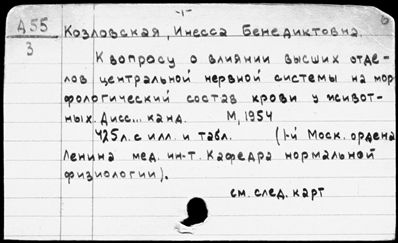 -1-
А55
3
Козловская, Инесса Бенедиктовна.
К вопросу о влиянии высших отде-
лов центральной нервной системы на мор-
фологический состав крови у живот-
ных. Дисс... канд. М, 1954
425л. с илл. и табл. (1-й Моск. ордена
Ленина мед. ин-т. Кафедра нормальной
физиологии).
см. след. карт